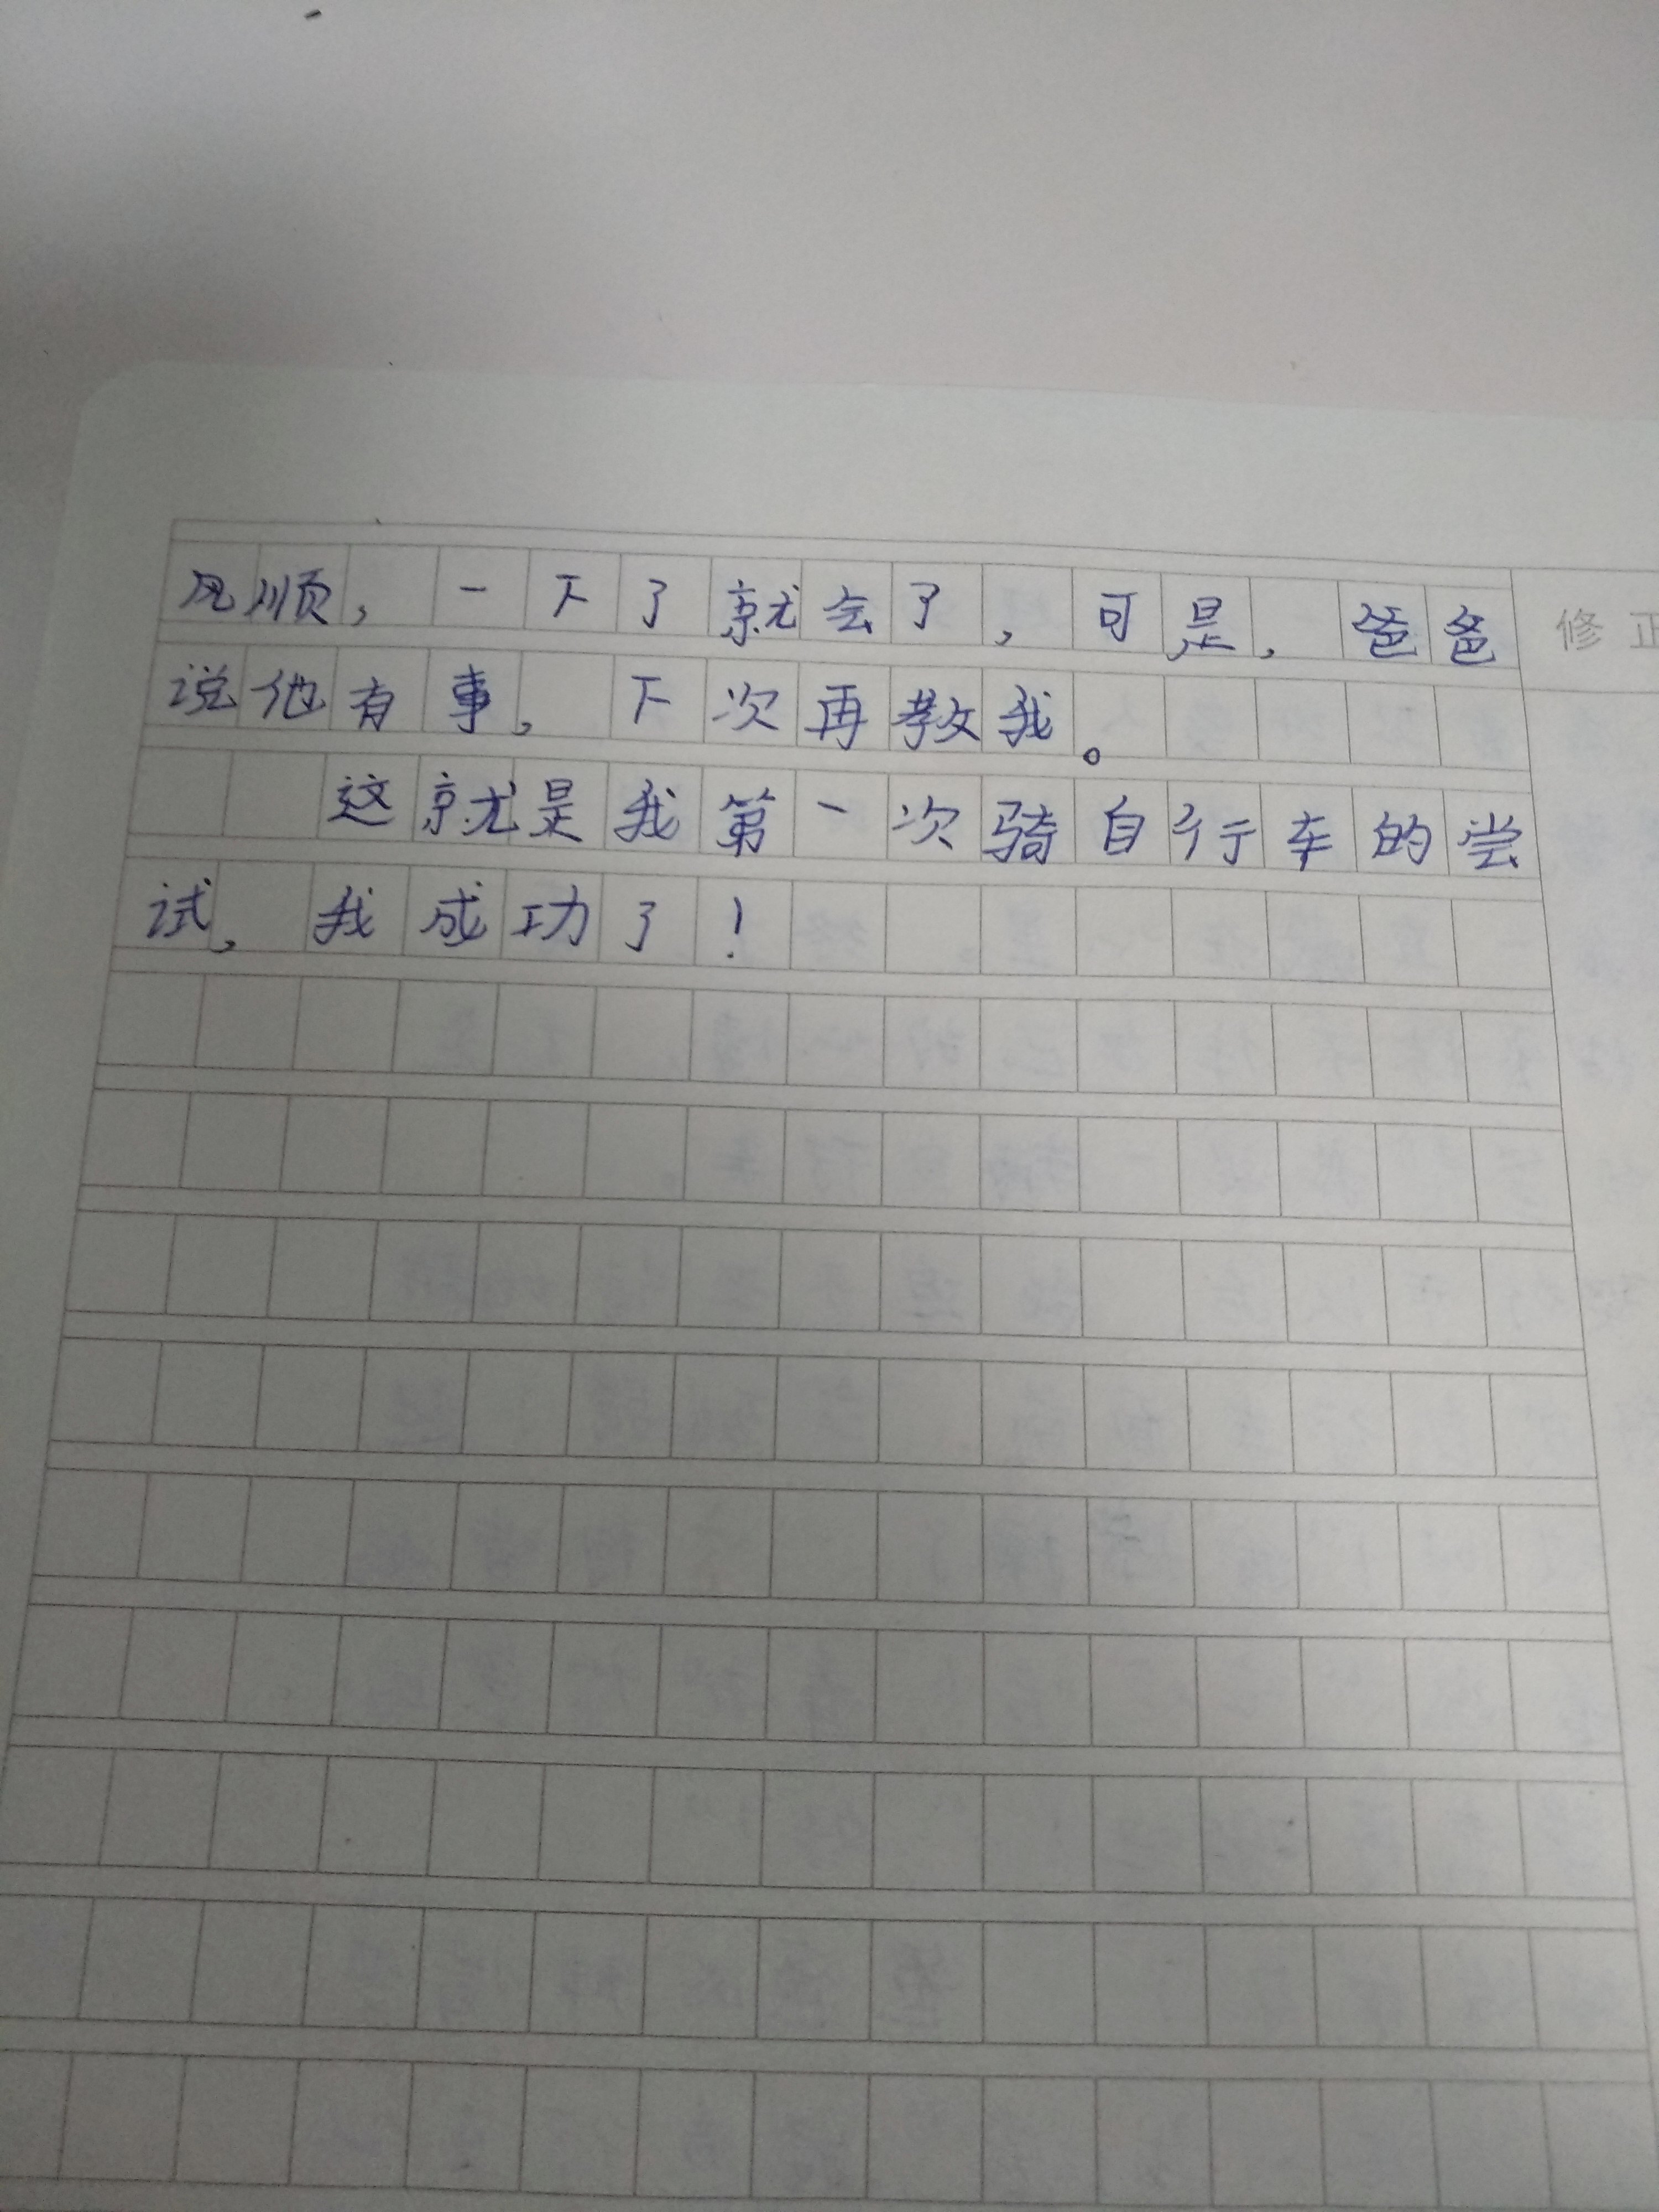 风顺，一下了就会了，可是，爸爸
修正
说他有事，下次再教我。
这就是我第一次骑自行车的尝
试，我成功了！